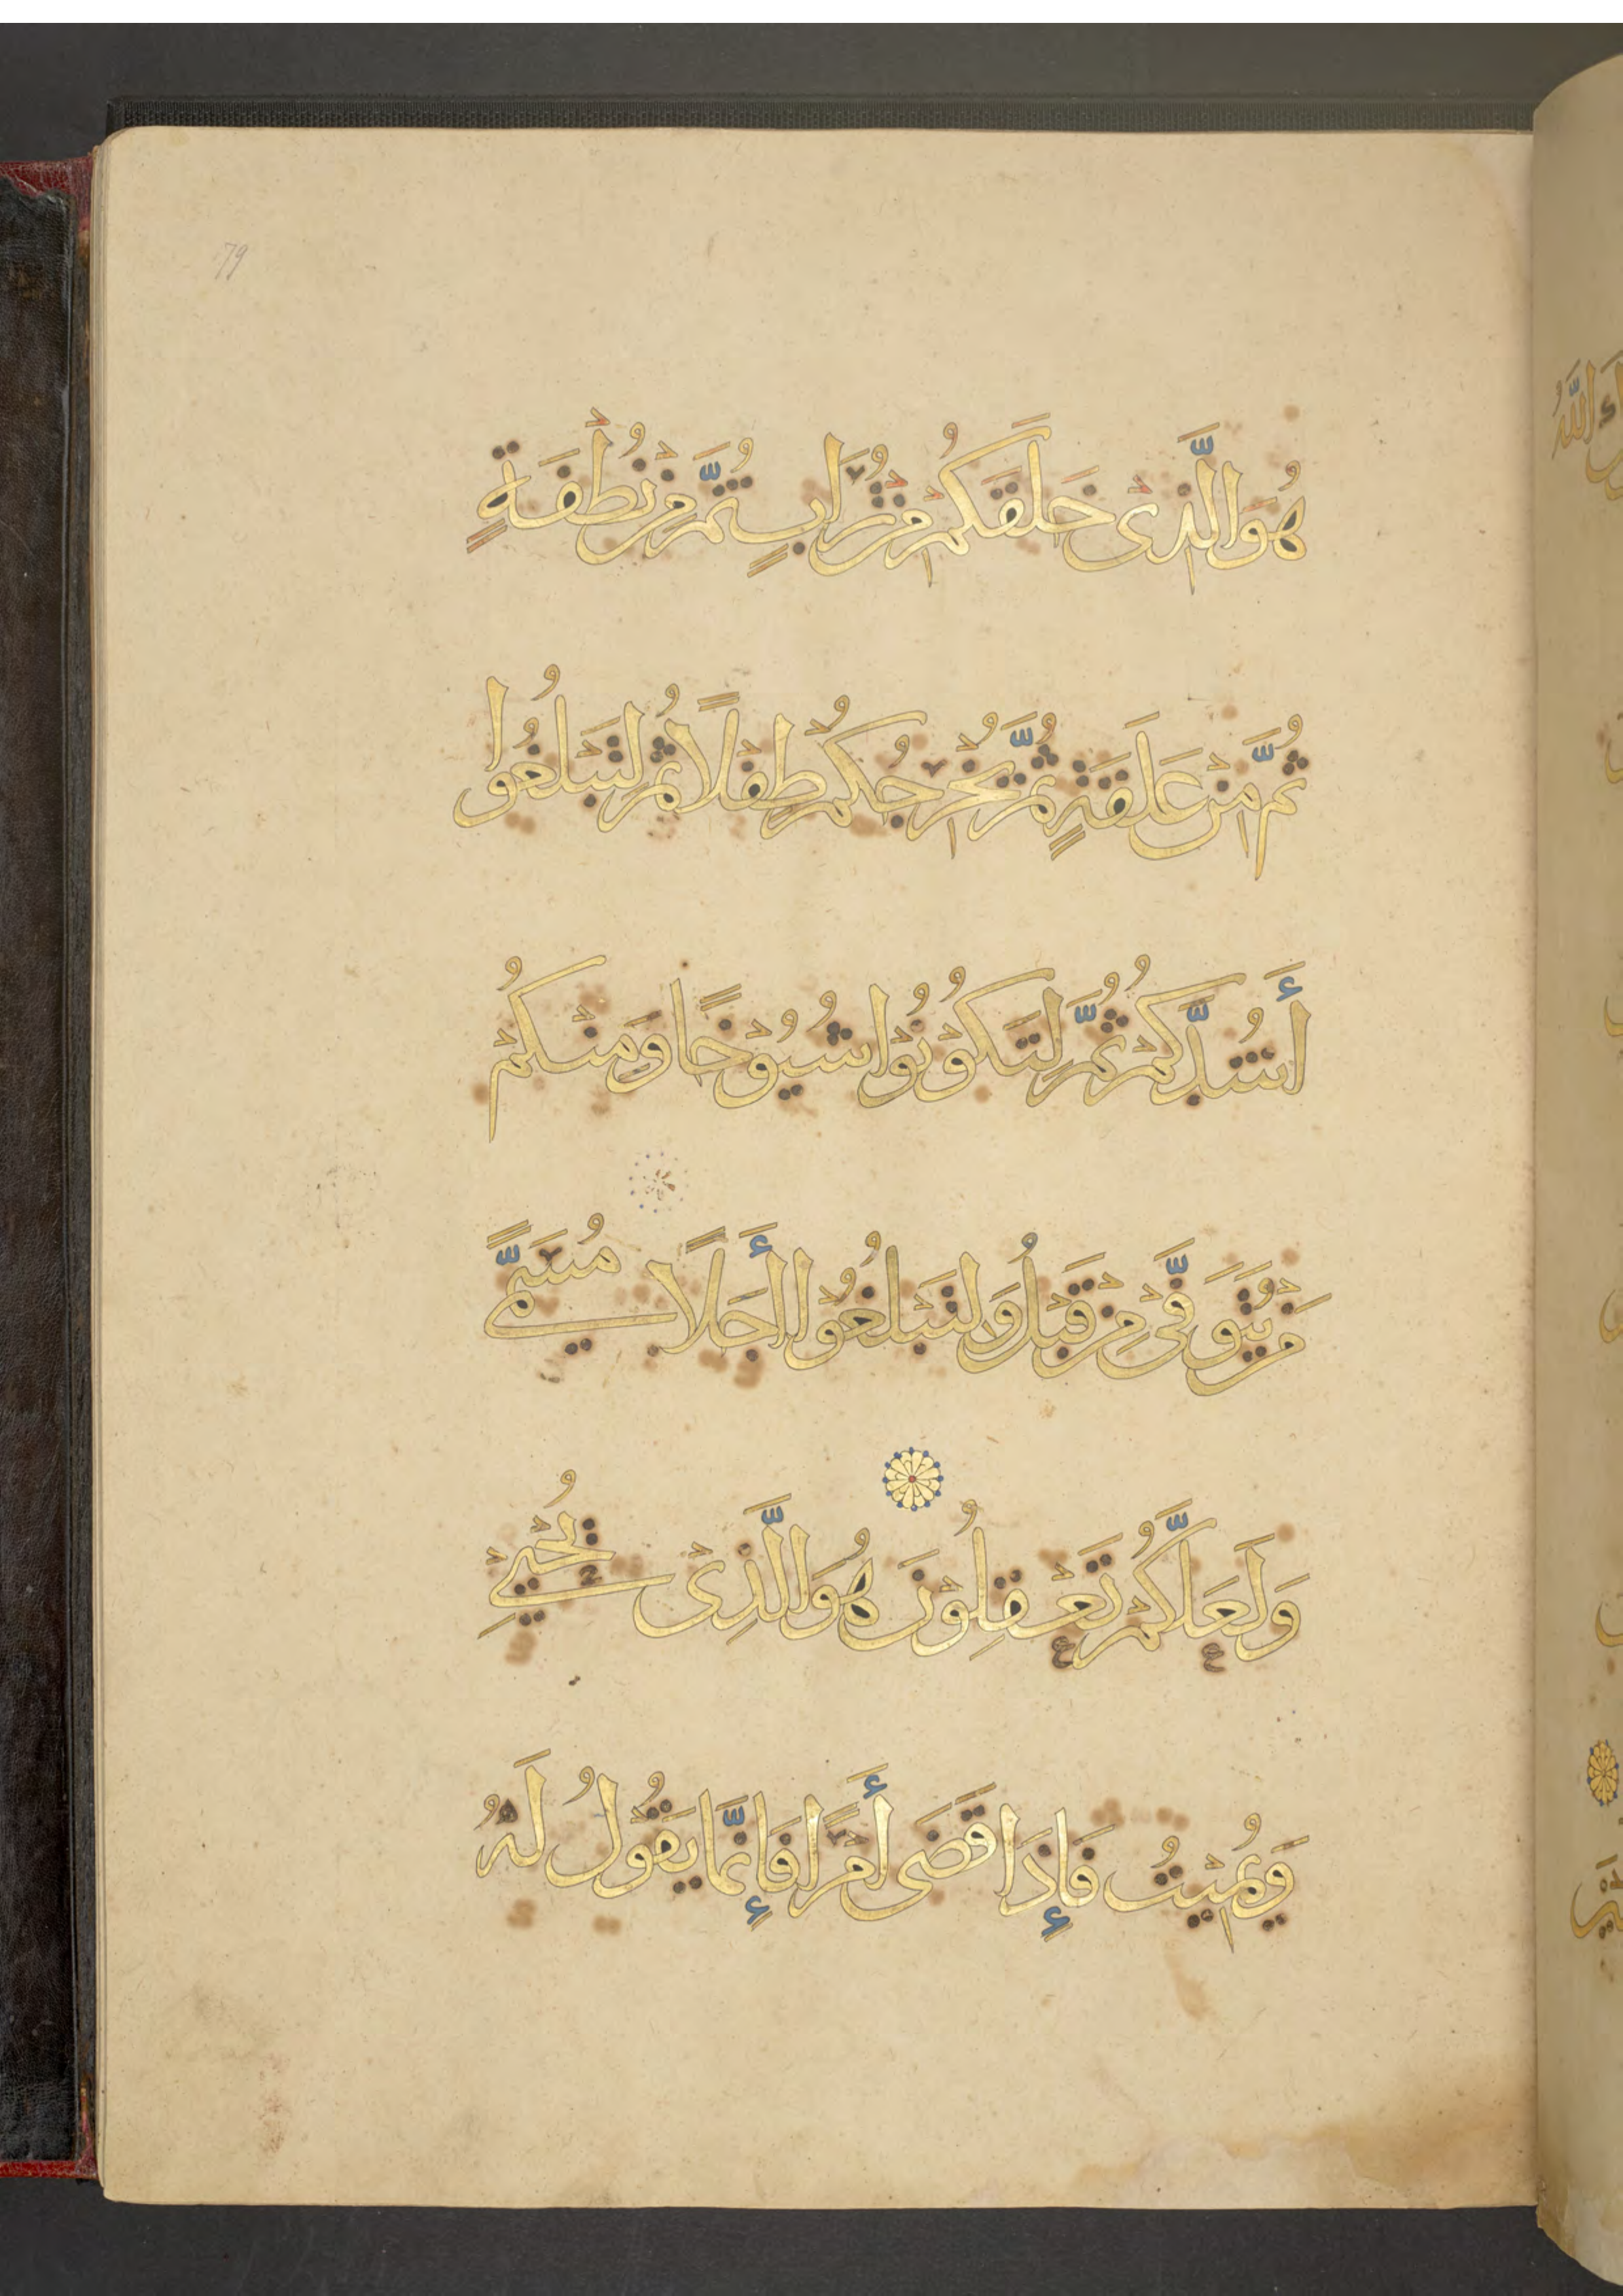 79
هُوَ الَّذِى خَلَقَكُمْ مِنْ تُرَابٍ ثُمَّ مِنْ نُطْفَةٍ
ثُمَّ مِنْ عَلَقَةٍ ثُمَّ يُخْرِجُكُمْ طِفْلًا ثُمَّ لِتَبْلُغُوا
أَشُدَّكُمْ ثُمَّ لِتَكُوْنُوْا شُيُوْخًا وَمِنْكُمْ
مَنْ يُتَوَفَّىٰ مِنْ قَبْلُ وَلِتَبْلُغُوْا أَجَلًا مُسَمًّى
وَلَعَلَّكُمْ تَعْقِلُوْنَ هُوَ الَّذِىْ يُحْيِيْ
وَيُمِيْتُ فَإِذَا قَضَى أَمْرًا فَإِنَّمَا يَقُوْلُ لَهُ
اللَّهُ